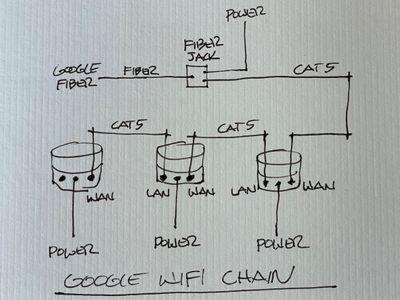 POWER
FIBER
JACK
GOOGLE
FIBER
FIBER
CAT5
CAT5
CAT5
WAN
LAN
WAN
LAN
WAN
POWER
POWER
POWER
GOOGLE WIFI CHAIN